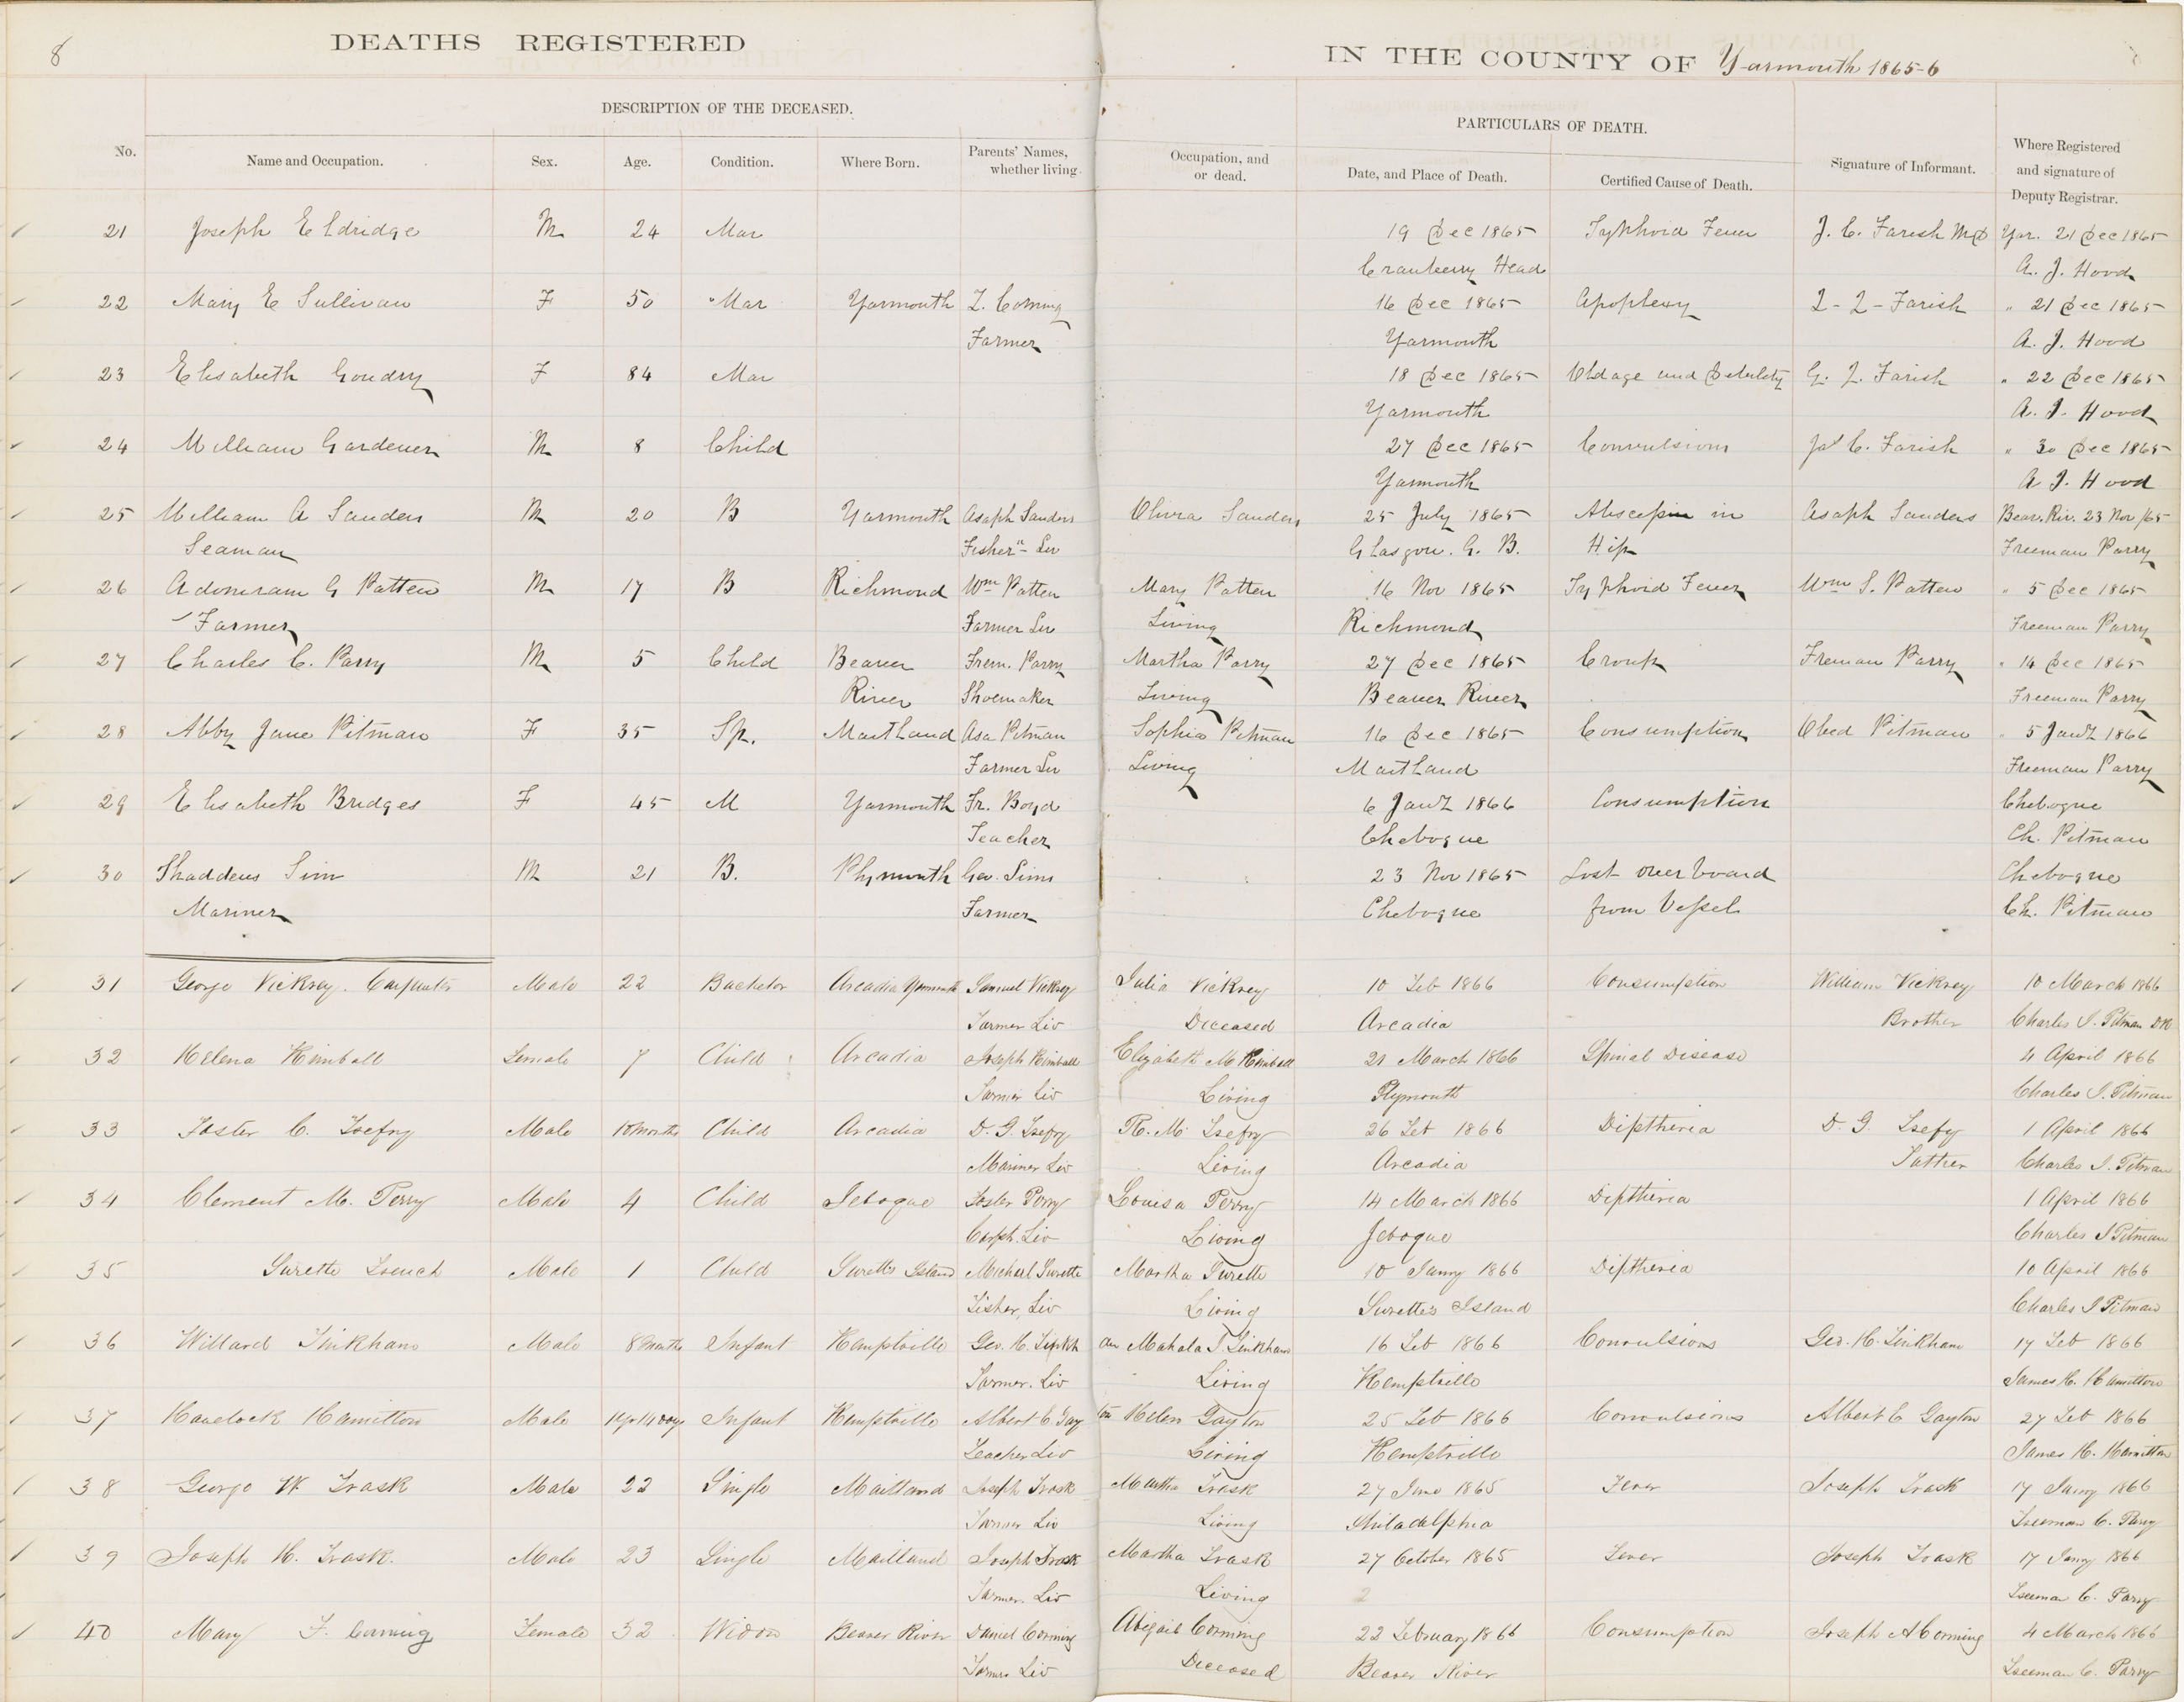 8
DEATHS REGISTERED
IN THE COUNTY OF Yarmouth 1865-6
DESCRIPTION OF THE DECEASED.
PARTICULARS OF DEATH.
No. Name and Occupation. Sex. Age. Condition. Where Born. Parents' Names, whether living Occupation, and or dead. Date, and Place of Death. Certified Cause of Death. Signature of Informant. Where Registered and signature of Deputy Registrar.
21 Joseph Eldridge M 24 Mar 19 Dec 1865 Typhoid Fever J. C. Farish MD Yar. 21 Dec 1865
Cranberry Head A. J. Hood
22 Mary E Sullivan F 50 Mar Yarmouth Z. Corning 16 Dec 1865 Apoplexy Farish " 21 Dec 1865
Farmer Yarmouth A. J. Hood
23 Elisabeth Goudry F 84 Mar 18 Dec 1865 Old age and Debility G. J. Farish " 22 Dec 1865
Yarmouth A. J. Hood
24 William Gardener M 8 Child 27 Dec 1865 Convulsions Jas C. Farish " 30 Dec 1865
Yarmouth A. J. Hood
25 William A Sanders M 20 B Yarmouth Asaph Sanders Olivia Sanders 25 July 1865 Abscess in Asaph Sanders Beav. Riv. 23 Nov /65
Seaman Fisherⁿ Liv Glasgow. G. B. Hip Freeman Parry
26 Adoniram G Patten M 17 B Richmond Wm Patten Mary Patten 16 Nov 1865 Typhoid Fever Wm S. Patten " 5 Dec 1865
Farmer Farmer Liv Living Richmond Freeman Parry
27 Charles C. Parry M 5 Child Beaver Frem. Parry Martha Parry 27 Dec 1865 Croup Freman Parry " 14 Dec 1865
River Shoemaker Living Beaver River Freeman Parry
28 Abby Jane Pitman F 35 Sp. Maitland Asa Pitman Sophia Pitman 16 Dec 1865 Consumption Obed Pitman " 5 Jany 1866
Farmer Liv Living Maitland Freeman Parry
29 Elisabeth Bridges F 45 M Yarmouth Fr. Boyd 6 Jany 1866 Consumption Chebogue
Teacher Chebogue Ch. Pitman
30 Thaddeus Sim M 21 B. Plymouth Geo. Sims 23 Nov 1865 Lost over board Chebogue
Mariner Farmer Chebogue from Vessel Ch. Pitman
31 George Vickrey. Carpenter Male 22 Bachelor Arcadia Yarmouth Samuel Vickrey Julia Vickrey 10 Feb 1866 Consumption William Vickrey 10 March 1866
Farmer Liv Deceased Arcadia Brother Charles S. Pitman DR
32 Helena Kimball Female 7 Child Arcadia Joseph Kimball Elizabeth M Kimball 21 March 1866 Spinal Disease 4 April 1866
Farmer Liv Living Plymouth Charles S. Pitman
33 Foster C. Male 10 months Child Arcadia D. G. R. M. 26 Feb 1866 Diptheria D. G. 1 April 1866
Mariner Liv Living Arcadia Father Charles S. Pitman
34 Clement M. Perry Male 4 Child Jebogue Foster Perry Louisa Perry 14 March 1866 Diptheria 1 April 1866
Carpt. Liv Living Jebogue Charles S Pitman
35 Surette French Male 1 Child Suretts Island Michael Surette Martha Surette 10 Janry 1866 Diptheria 10 April 1866
Fisher, Liv Living Surettes Island Charles S Pitman
36 Willard Tinkham Male 8 months Infant Kemptville Geo. H. Tinkh am Mahala J. Tinkham 16 Feb 1866 Convulsions Geo. H. Tinkham 17 Feb 1866
Farmer. Liv Living Kemptville James H. Hamilton
37 Havelock Hamilton Male 1 yr 14 days Infant Kemptville Albert C Gay ton Helen Gayton 25 Feb 1866 Convulsions Albert C Gayton 27 Feb 1866
Teacher Liv Living Kemptville James H. Hamilton
38 George W Trask Male 22 Single Maitland Joseph Trask Martha Trask 27 June 1865 Fever Joseph Trask 17 Janry 1866
Farmer Liv Living Philadelphia Freeman C. Parry
39 Joseph H. Trask. Male 23 Single Maitland Joseph Trask Martha Trask 27 October 1865 Fever Joseph Trask 17 Janry 1866
Farmer. Liv Living 2 Freeman C. Parry
40 Mary F. Corning Female 32 Widow Beaver River Daniel Corning Abigail Corning 22 February 1866 Consumption Joseph A Corning 4 March 1866
Farmer Liv Deceased Beaver River Freeman C. Parry